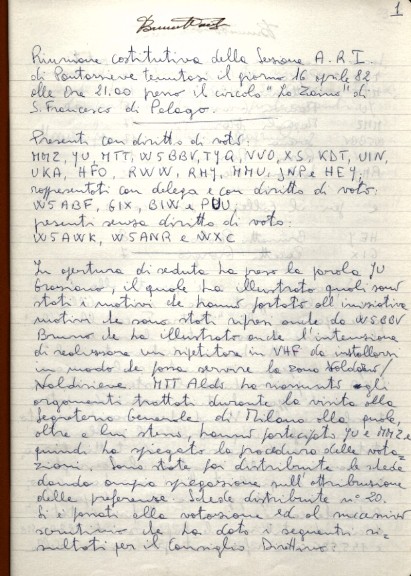 1
Riunione costitutiva della Sezione A.R.I.
di Pontassieve tenutasi il giorno 16 aprile 82
alle Ore 21.00 presso il circolo "Lo Zaino" di
S. Francesco di Pelago.
Presenti con diritto di voto:
MMZ, YU, MTT, W5BBV, TYQ, VVO, XS, KDT, UIN,
UKA, HFO, RWW, RHY, MMU, JNP e HEY;
rappresentati con delega e con diritto di voto:
W5ABF, GIX, BIW e PUU;
presenti senza diritto di voto:
W5AWK, W5ANR e WXC
In apertura di seduta ha preso la parola YU
Graziano, il quale ha illustrato quali sono
stati i motivi che hanno portato all'iniziativa
motivi che sono stati ripresi anche da W5BBV
Bruno che ha illustrato anche l'intenzione
di realizzare un ripetitore in VHF da installarsi
in modo che possa servire la zona Valdarno/
Valdisieve. MTT Aldo ha riassunto gli
argomenti trattati durante la visita alla
Segreteria Generale di Milano alla quale,
oltre a lui stesso, hanno partecipato YU e MMZ e
quindi ha spiegato la procedura delle vota-
zioni. Sono state poi distribuite le schede
dando ampia spiegazione sull'attribuzione
delle preferenze. Schede distribuite n° 20.
Si è passati alla votazione ed al successivo
scrutinio che ha dato i seguenti ri-
sultati per il Consiglio Direttivo